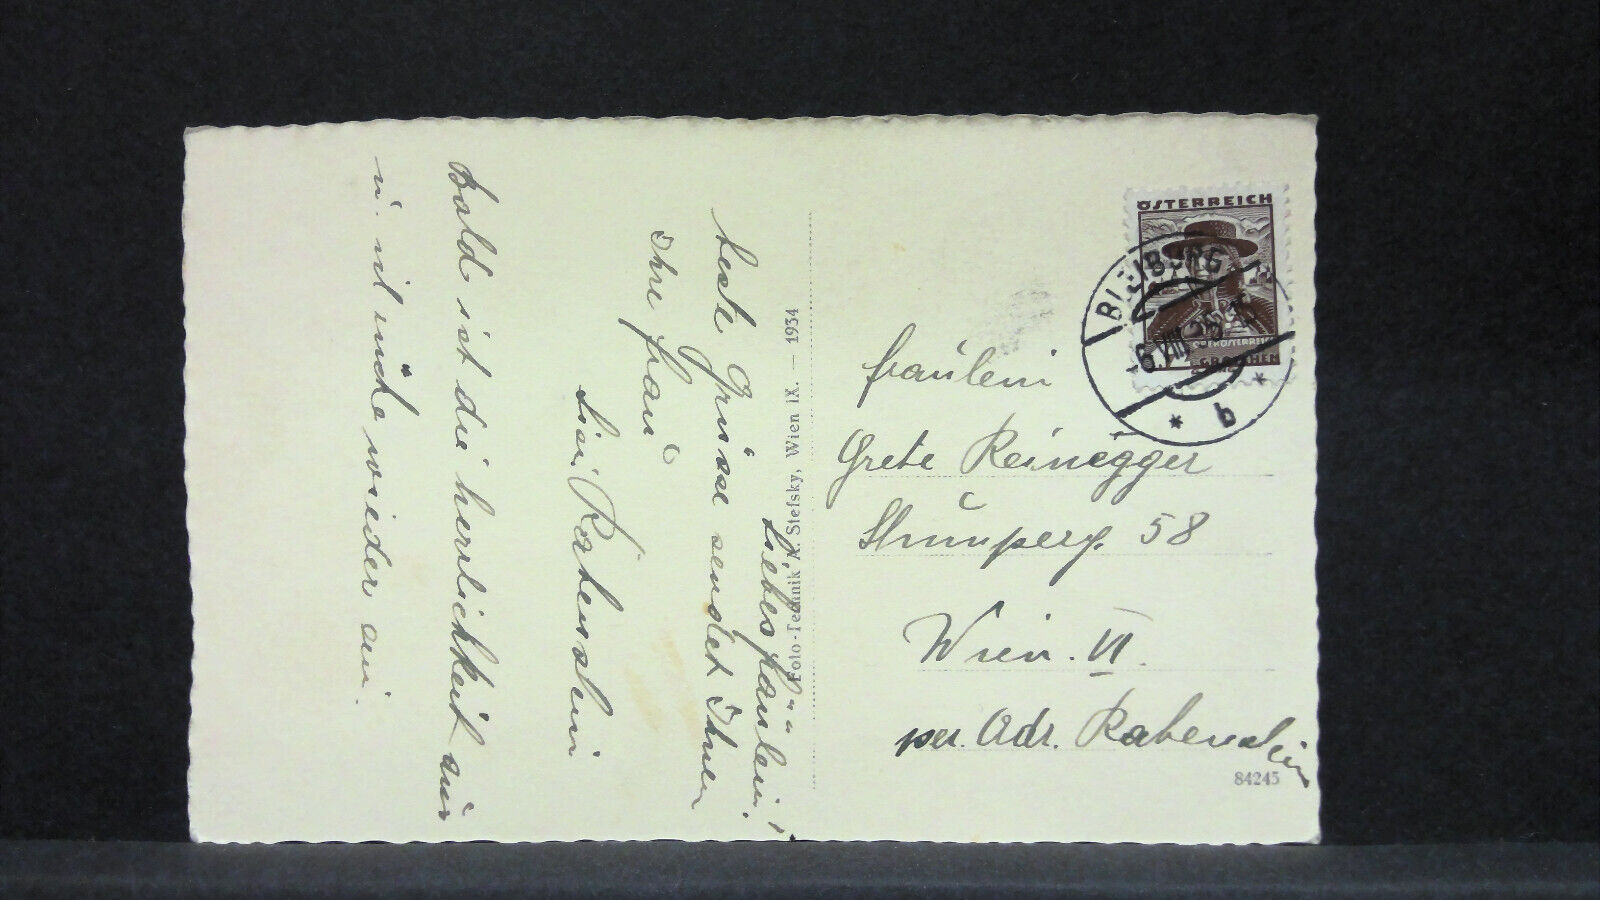 Liebes Fräulein!
beste Grüsse sendet Ihnen
Ihre Frau
Rabenstein
Bald ist die herrlichkeit aus
u. ich rücke wieder ein.
Foto-Technik A. Stefsky, Wien IX. — 1934
ÖSTERREICH
OBERÖSTERREICH
GROSCHEN
BLEIBURG
6.VIII.35
* b *
Fräulein
Grete Reinegger
Stumperg. 58
Wien. VI.
per. Adr. Rabenstein
84245